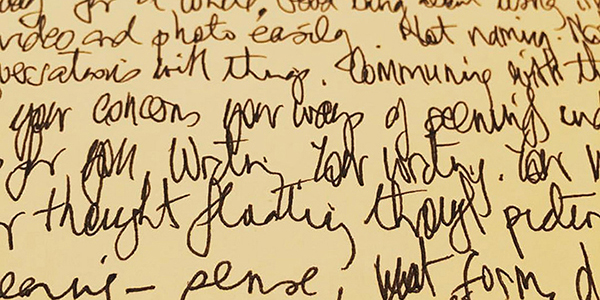 for a while, Good thing about
video and photo easily. Not naming. No
versations with things. Communing with th
your concerns your ways of seeming
for you. Writing. Your writing. Your
r thought floating through
earing – sense, what form, d